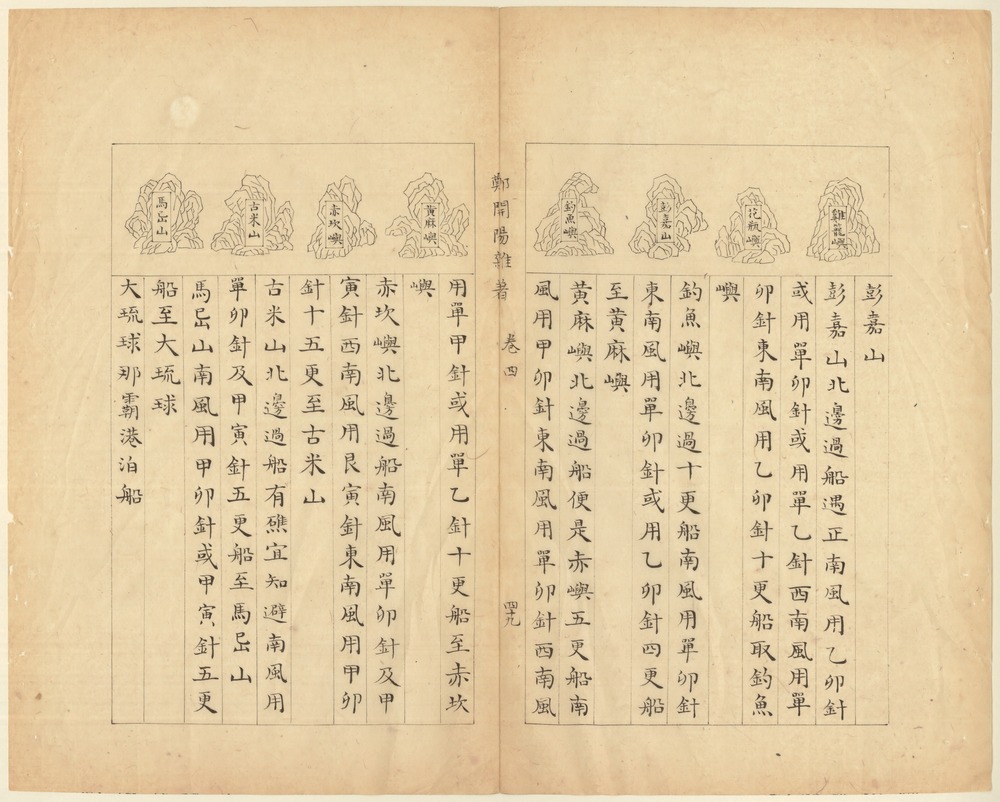 雞籠嶼
花瓶嶼
彭嘉山
釣魚嶼
彭嘉山
彭嘉山北邊過船遇正南風用乙卯針
或用單卯針或用單乙針西南風用單
卯針東南風用乙卯針十更船取釣魚
嶼
釣魚嶼北邊過十更船南風用單卯針
東南風用單卯針或用乙卯針四更船
至黃麻嶼
黃麻嶼北邊過船便是赤嶼五更船南
風用甲卯針東南風用單卯針西南風
鄭開陽雜著
卷四
四十九
黃麻嶼
赤坎嶼
古米山
馬岊山
用單甲針或用單乙針十更船至赤坎
嶼
赤坎嶼北邊過船南風用單卯針及甲
寅針西南風用艮寅針東南風用甲卯
針十五更至古米山
古米山北邊過船有礁宜知避南風用
單卯針及甲寅針五更船至馬岊山
馬岊山南風用甲卯針或甲寅針五更
船至大琉球
大琉球那霸港泊船